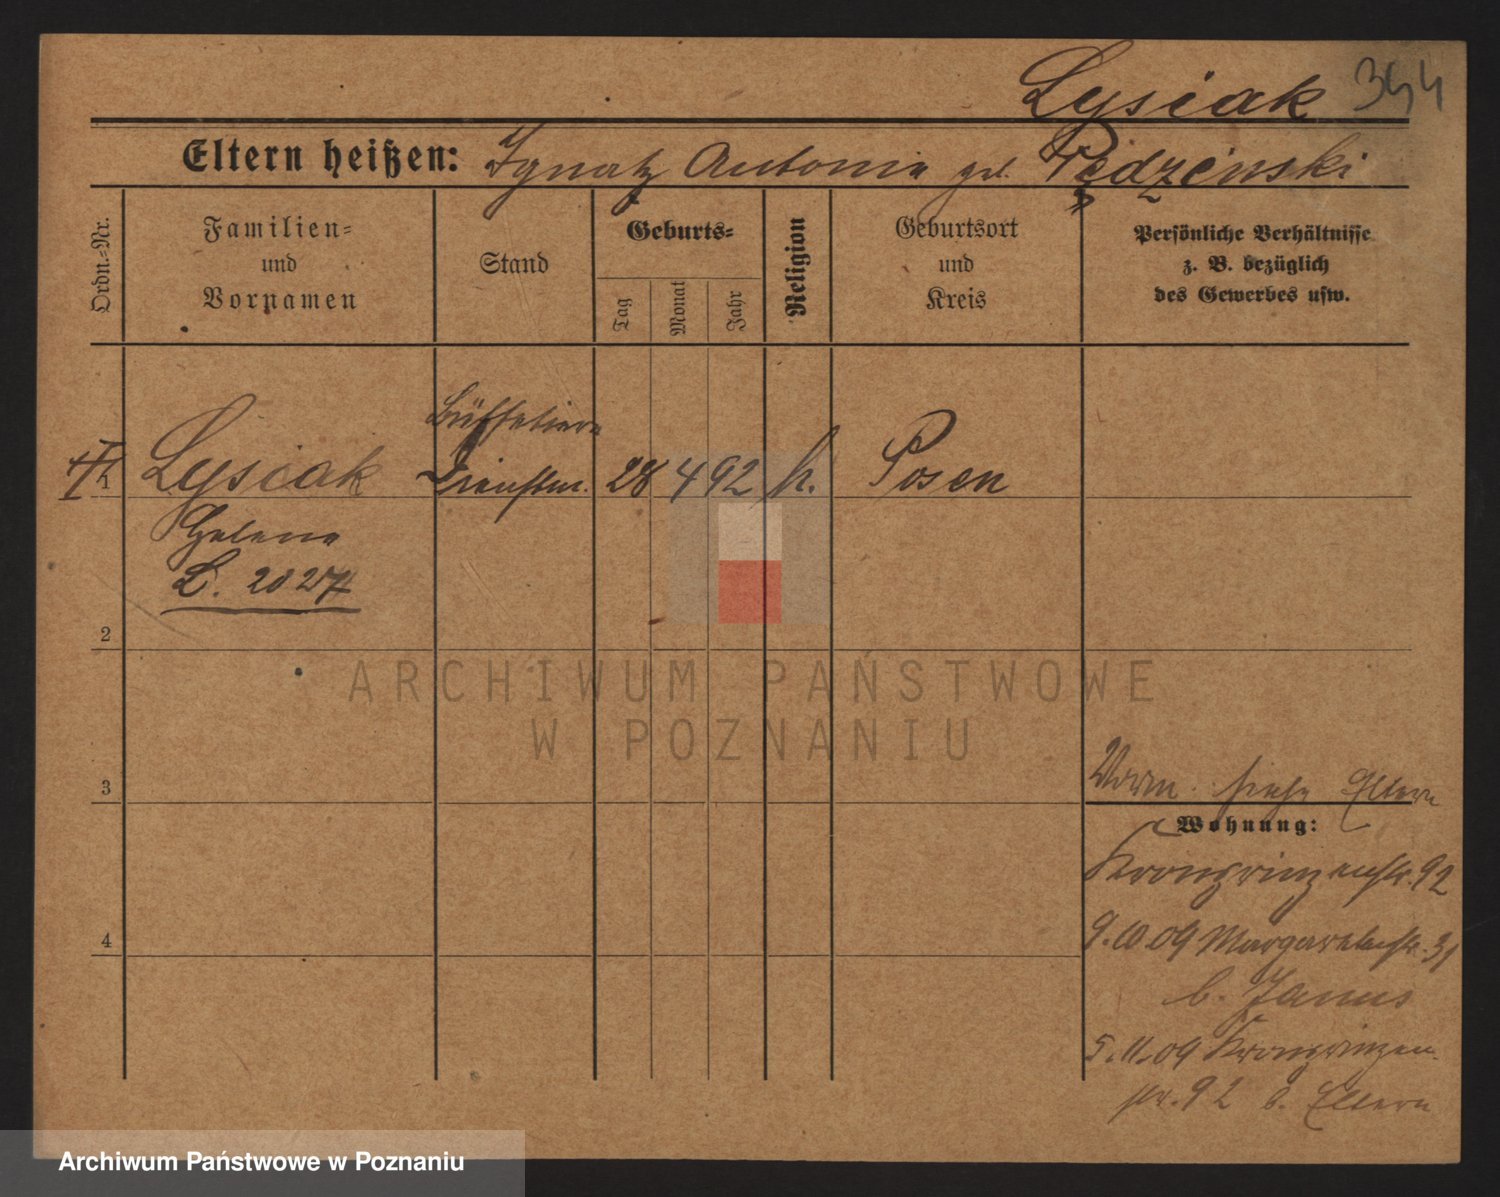 Lysiak 354
Eltern heißen: Ignatz Antonie geb. Pędzinski
Ordn.-Nr.
Familien-
und
Vornamen
Stand
Geburts-
Tag
Monat
Jahr
Religion
Geburtsort
und
Kreis
Persönliche Verhältnisse
z. B. bezüglich
des Gewerbes usw.
Büffetiere
1 Lysiak Dienstm. 28 4 92 k. Posen
Helene
L. 2027
2
3
4
Vorm. siehe Eltern
Wohnung:
Kronprinzenstr. 92
9.10.09 Margarethenstr. 31
b. Janus
5.11.09 Kronprinzen-
str. 92 b. Eltern
ARCHIWUM PAŃSTWOWE
W POZNANIU
Archiwum Państwowe w Poznaniu